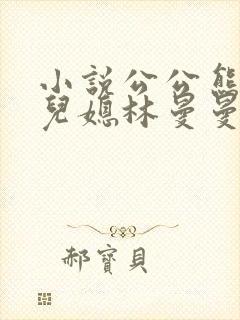 小說公公熊
兒媳林曼曼
郝寶貝